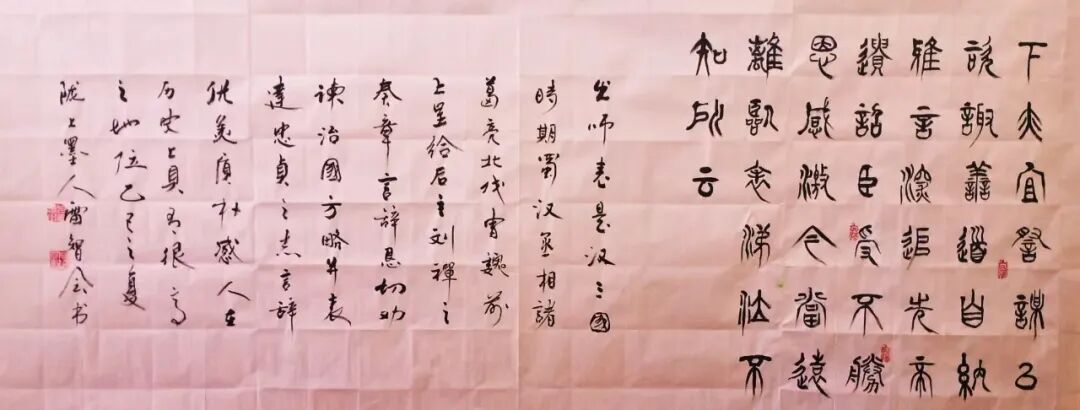 下亦宜詧謀㠯
諮諏善道自納
雅言深追先帝
遺詔臣受不勝
恩感激今當遠
離臨表涕泣不
知所云
出师表是汉三國
時期蜀汉丞相諸
葛亮北伐曹魏前
上呈给后主刘禪之
奏章言辞恳切劝
諫治國方略并表
達忠貞之志言辞
优美质朴感人在
历史上具有很高
之地位乙巳之夏
陇上墨人雷智金书